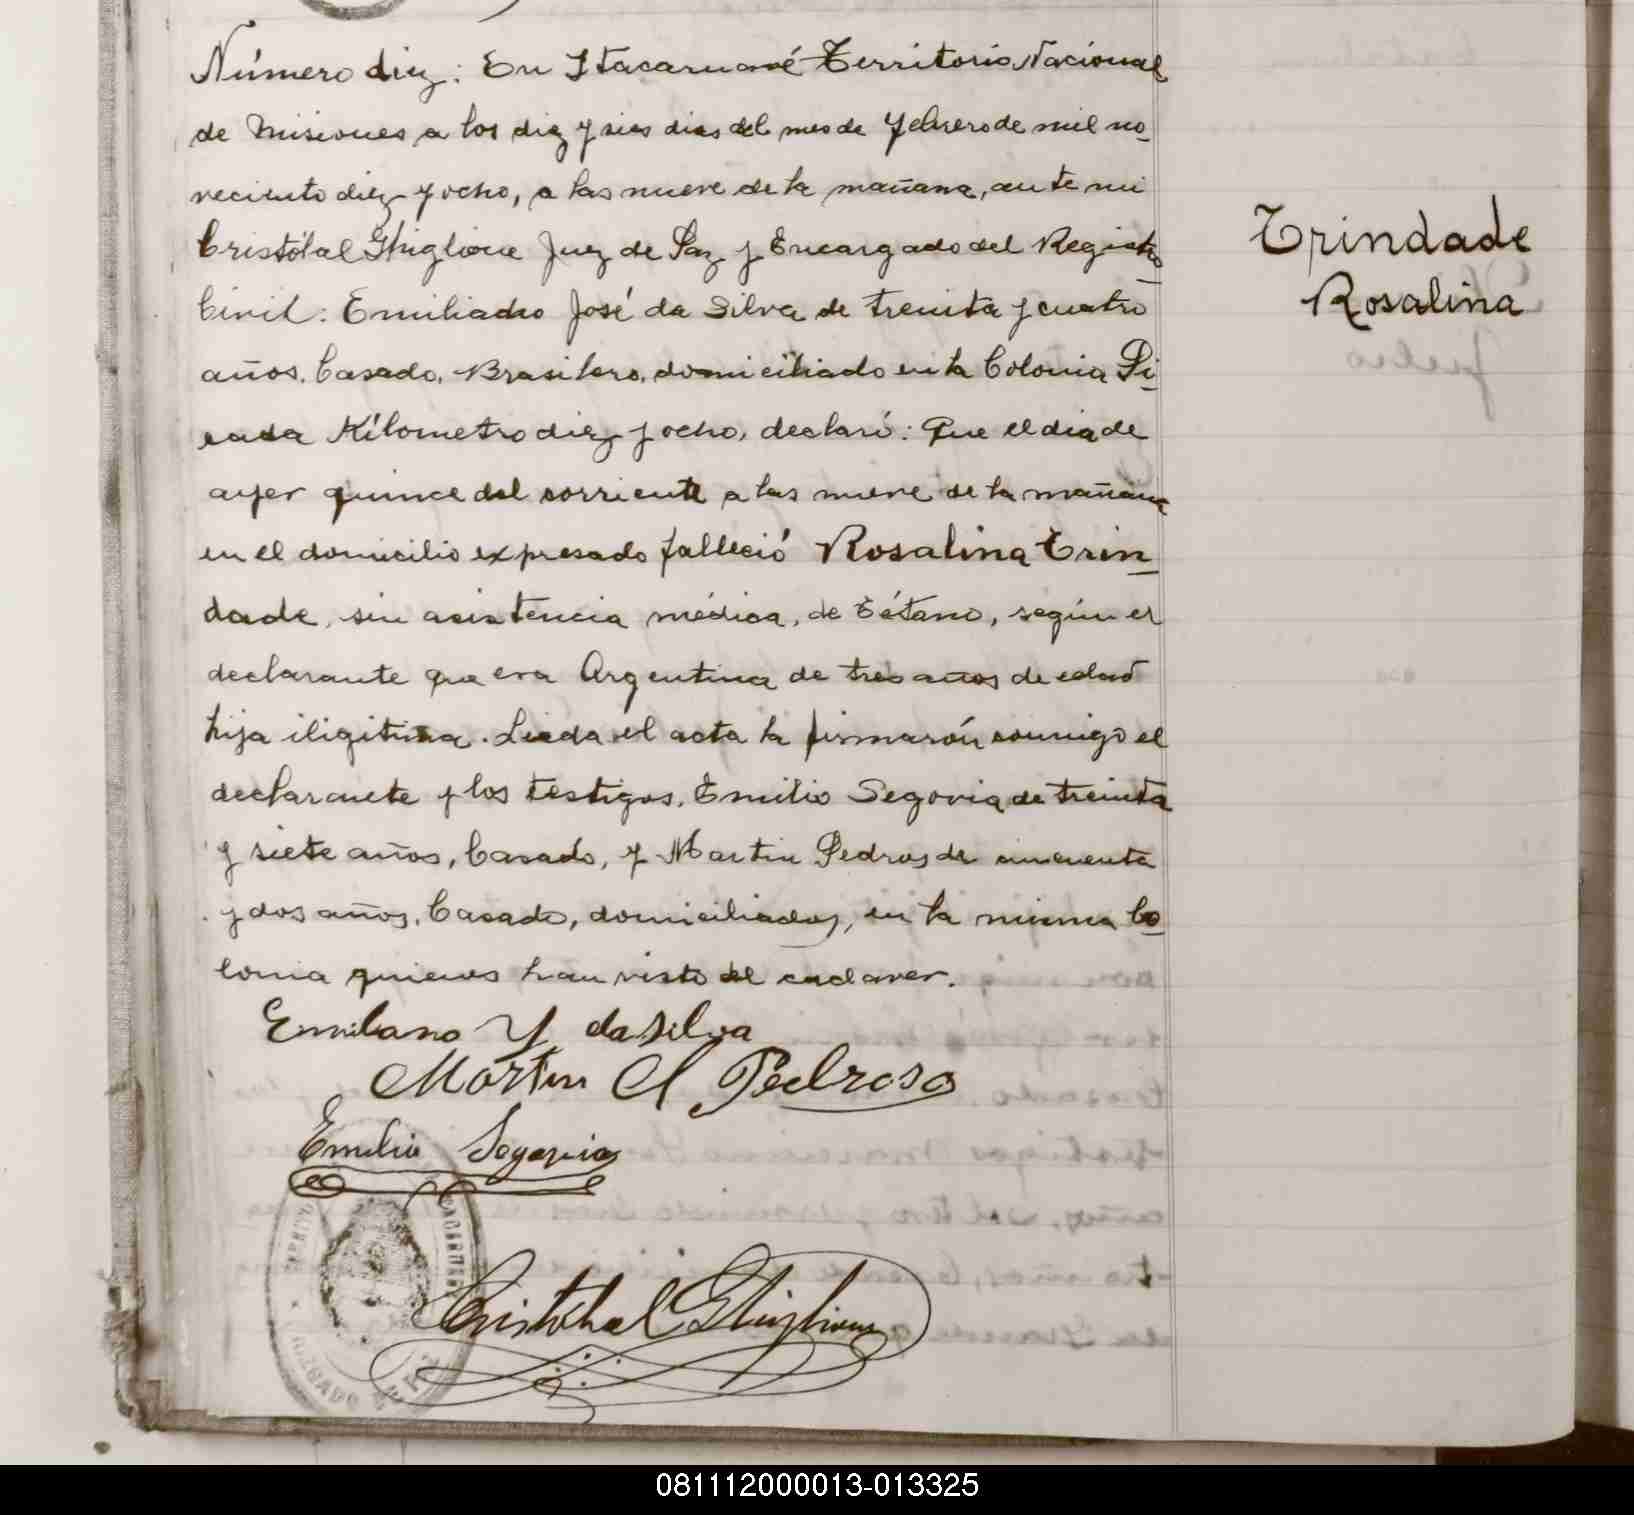 Número diez: En Itacaruaré Territorio Nacional
de Misiones a los diez y seis dias del mes de Febrero de mil no_
veciento diez y ocho, a las nueve de la mañana, ante mi
Cristóbal Ghiglione Juez de Paz y Encargado del Registro
Civil: Emiliadno José da Silva de treinta y cuatro
años. Casado, Brasilero, domiciliado en la Colonia Pi_
cada Kílometro diez y ocho, declaró: Que el dia de
ayer quince del corriente a las nueve de la mañana
en el domicilio expresado falleció Rosalina Trin_
dade, sin asistencia médica, de Tétano, según el
declarante que era Argentina de tres años de edad
hija iligitima. Leeda el acta la firmarón conmigo el
declarante y los testigos, Emilio Segovia de treinta
y siete años, Casado, y Martin Pedroso de cincuenta
y dos años, Casado, domiciliados, en la misma Co_
lonia quienes han visto el cadaver.
Emiliano Y da silva
Martin A Pedroso
Emilio Segovia
Cristobal Ghiglione
Trindade
Rosalina
JUZGADO DE PAZ
081112000013-013325